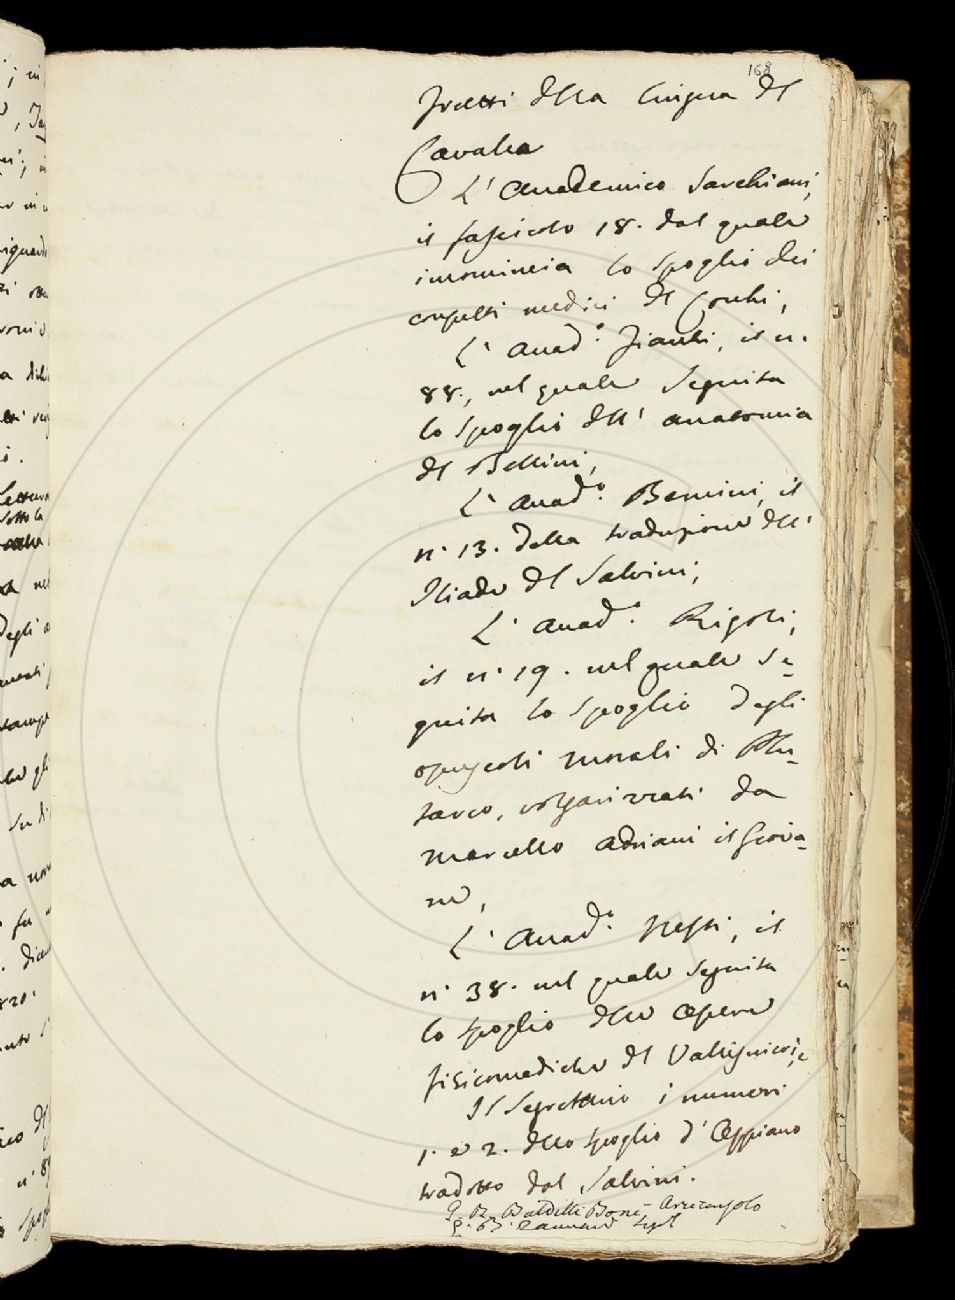 168
Fratti della lingua del
Cavalca
L'Accademico Sarchiani,
il fascicolo 18. dal quale
incomincia lo Spoglio dei
consulti medici del Cocchi,
L'Accad.o Fiacchi, il n.
88., nel quale Seguita
lo Spoglio dell' anatomia
del Bellini,
L'Accad.o Bencini, il
n.o 13. della traduzione dell'
Iliade del Salvini,
L'Accad.o Rigoli,
il n.o 19. nel quale Se-
guita lo Spoglio degli
opuscoli morali di Plu-
tarco, volgarizzati da
Marcello Adriani il Giova-
ne,
L'Accad.o Nesti, il
n.o 38. nel quale Seguita
lo Spoglio delle Opere
fisicomediche del Vallisnieri, e
Il Segretario i numeri
1. e 2. dello Spoglio d'Oppiano
tradotto dal Salvini.
G. B. Baldelli Boni - Arciconsolo
G. B. Zannoni Seg.
ri ott
a dili
Sotto la
nel
degli a
Su di
a non
fu
. dicem
820.
n.o 8
Spogl